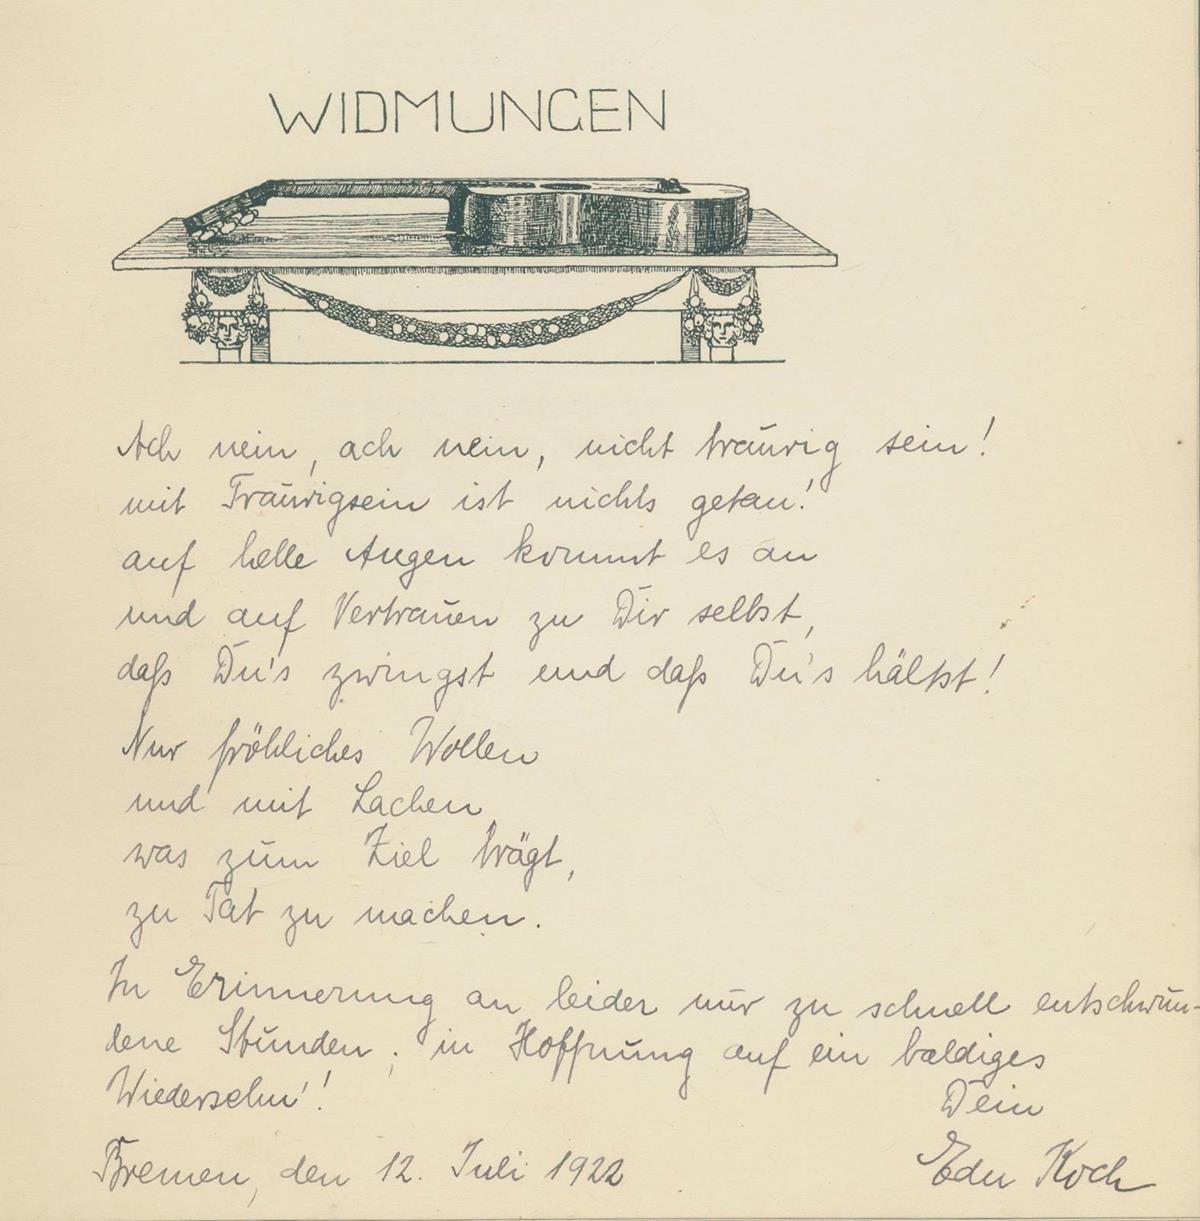 WIDMUNGEN
Ach nein, ach nein, nicht traurig sein!
mit Traurigsein ist nichts getan!
auf helle Augen kommt es an
und auf Vertrauen zu Dir selbst,
daß Du's zwingst und daß Du's hältst!
Nur fröhliches Wollen
und mit Lachen
was zum Ziel trägt,
zu Tat zu machen.
In Erinnerung an leider nur zu schnell entschwun-
dene Stunden, in Hoffnung auf ein baldiges
Wiedersehn'!
Dein
Bremen, den 12. Juli 1922
Edu Koch